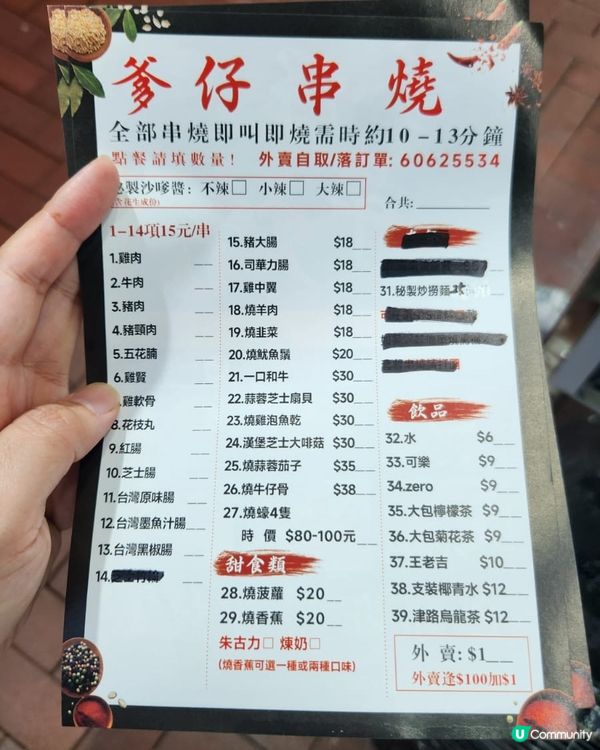 爹仔串燒
全部串燒即叫即燒需時約10-13分鐘
點餐請填數量! 外賣自取/落訂單: 60625534
製沙嗲醬: 不辣□ 小辣□ 大辣□
含花生成份)
合共:
1-14項15元/串
1.雞肉
2.牛肉
3.豬肉
4.豬頸肉
5.五花腩
6.雞腎
雞軟骨
8.花枝丸
9.紅腸
10.芝士腸
11.台灣原味腸
12.台灣墨魚汁腸
13.台灣黑椒腸
14.
15.豬大腸 $18
16.司華力腸 $18
17.雞中翼 $18
18.燒羊肉 $18
19.燒韭菜 $18
20.燒魷魚鬚 $20
21.一口和牛 $30
22.蒜蓉芝士扇貝 $30
23.燒雞泡魚乾 $30
24.漢堡芝士大啡菇 $30
25.燒蒜蓉茄子 $35
26.燒牛仔骨 $38
27.燒蠔4隻
時價 $80-100元
甜食類
28.燒菠蘿 $20
29.燒香蕉 $20
朱古力□ 煉奶□
(燒香蕉可選一種或兩種口味)
31.秘製炒撈麵
飲品
32.水 $6
33.可樂 $9
34.zero $9
35.大包檸檬茶 $9
36.大包菊花茶 $9
37.王老吉 $10
38.支裝椰青水 $12
39.津路烏龍茶 $12
外賣: $1
外賣逢$100加$1
U Community